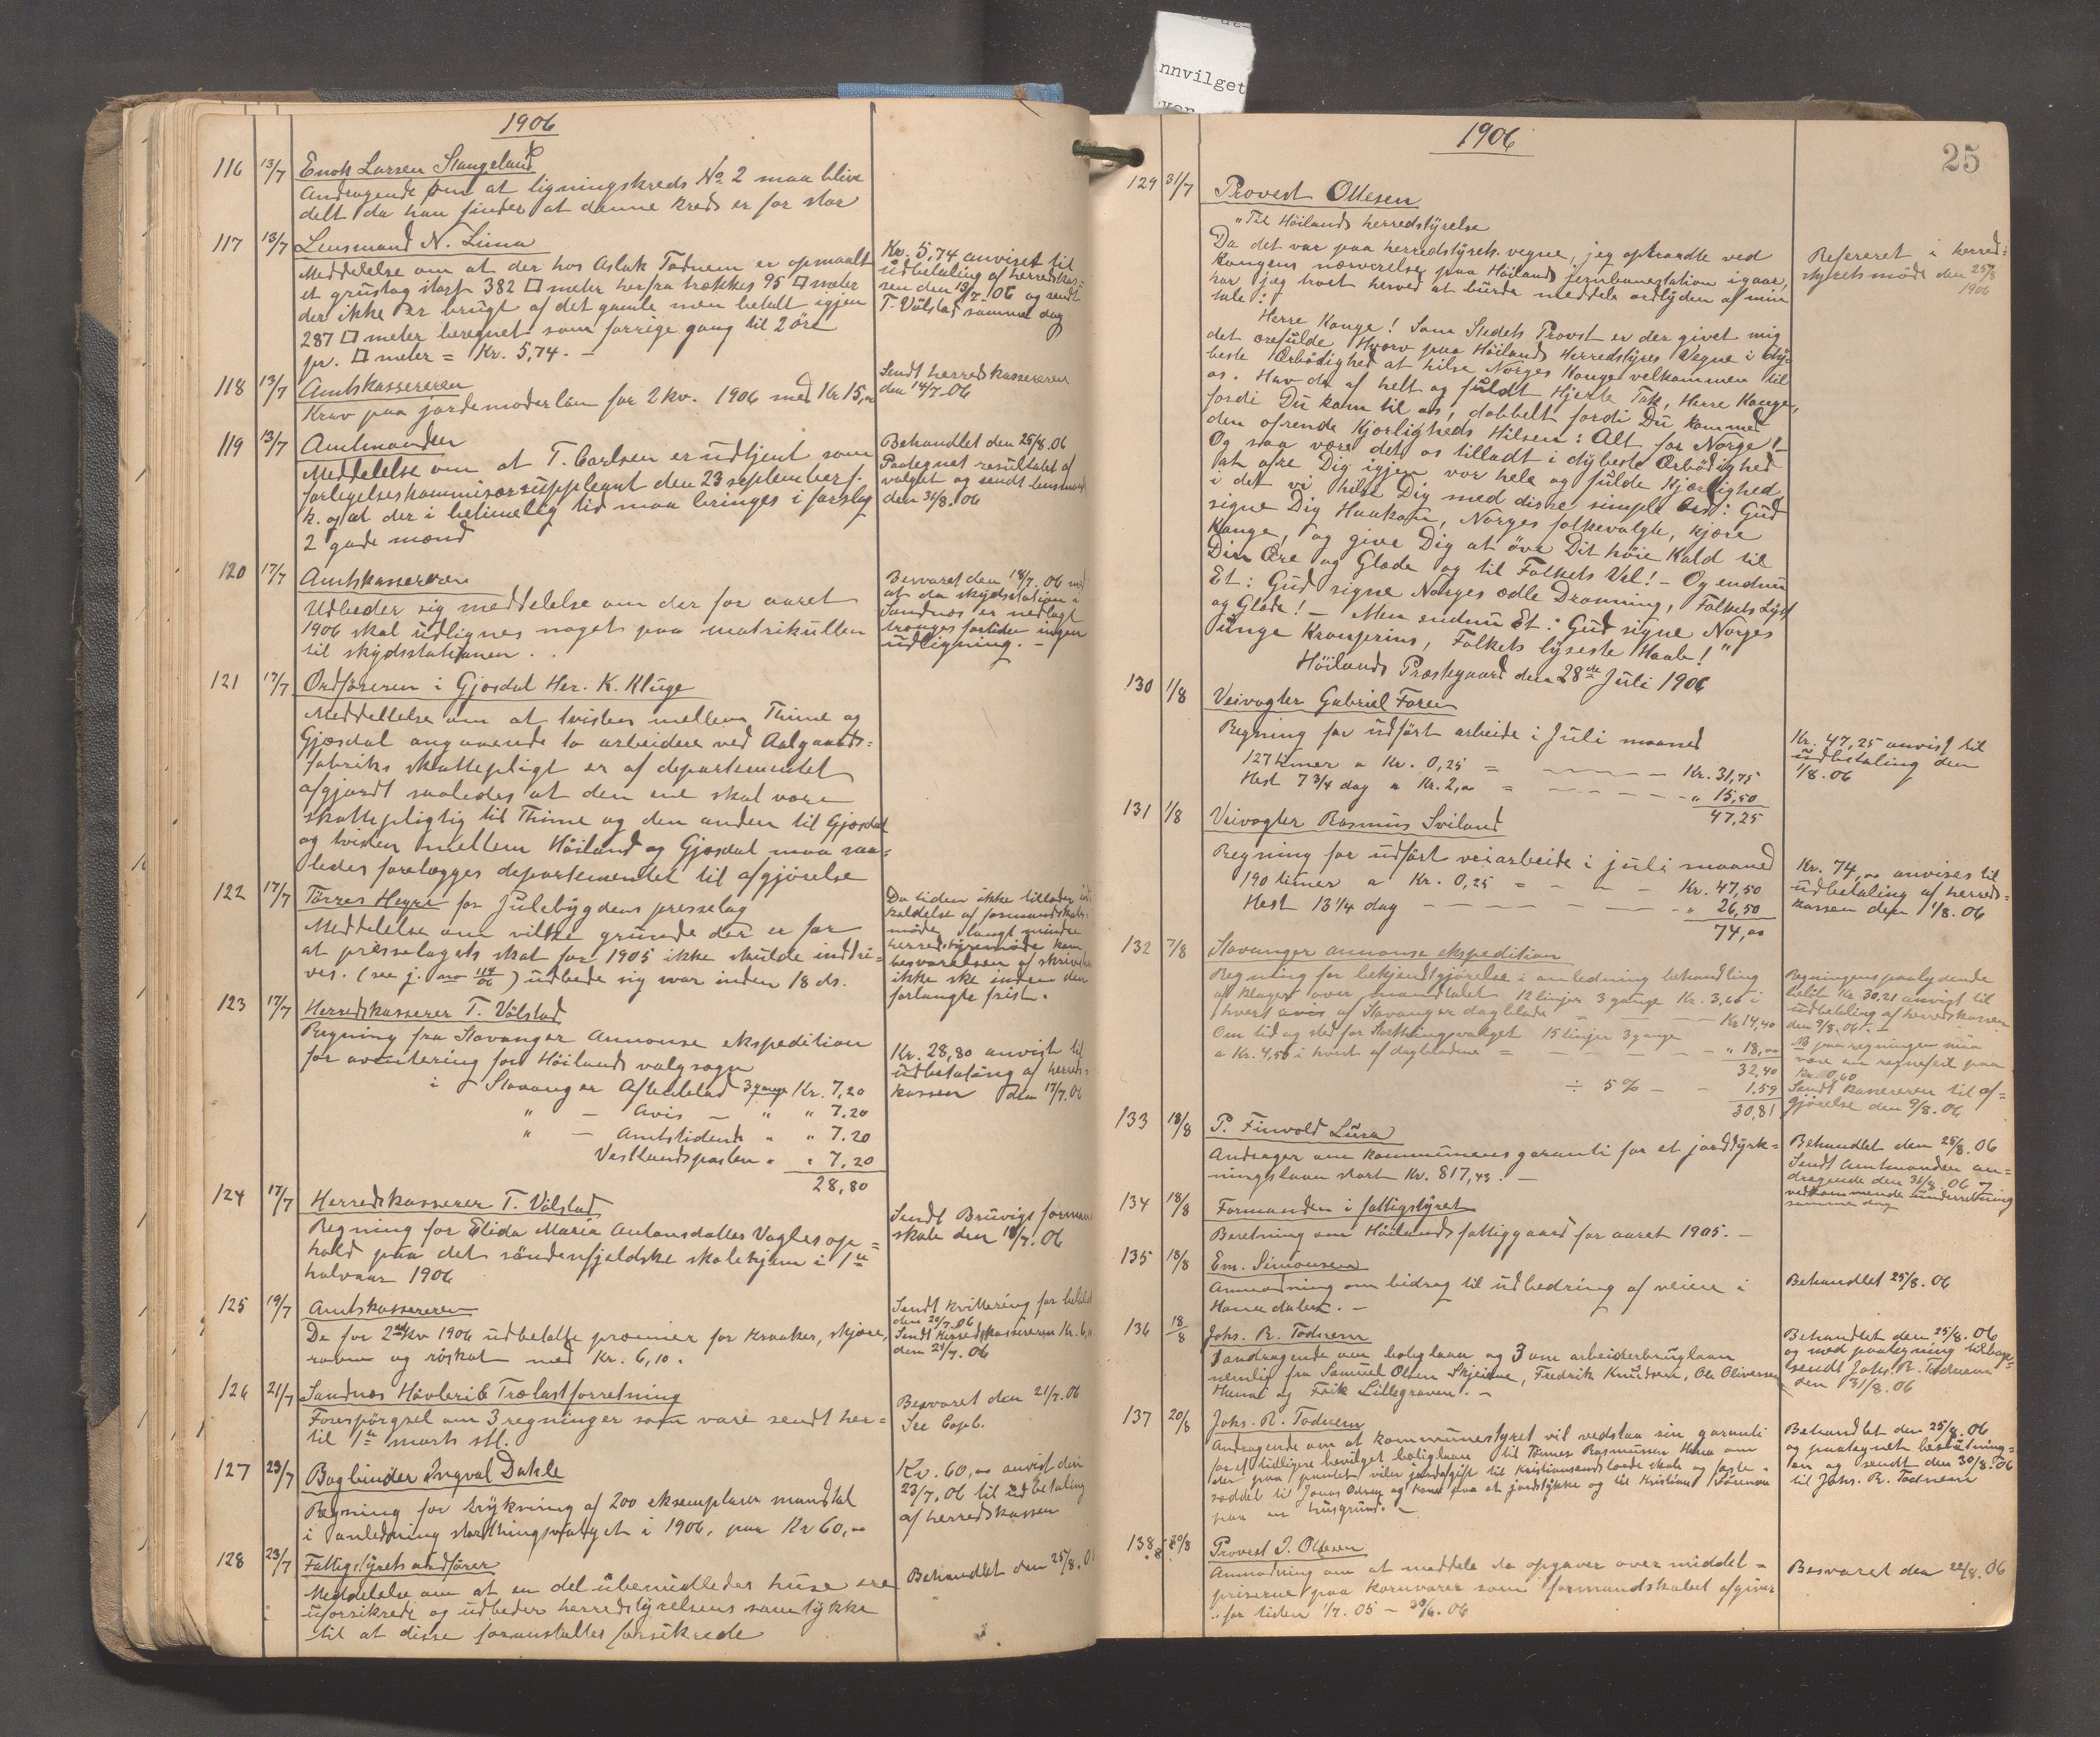 nnvilget
1906
116 13/7 Enok Larsen Stangeland
Andragende om at ligningskreds No 2 maa blive
delt da han finder at denne kreds er for stor
117 13/7 Lensmand N. Lima
Meddelelse om at der hos Aslak Todnem er opmaalt
et grustag stort 382 □ meter herfra trækkes 95 □ meter
der ikke er brugt af det gamle men betalt igjen
287 □ meter beregnet som forrige gang til 2 öre
pr. □ meter = Kr. 5,74. –
Kr. 5,74 anvist til
udbetaling af herredskas-
sen den 13/7-06 og sendt
T. Völstad samme dag
118 13/7 Amtskassereren
Krav paa jordemoderlön for 2 kv. 1906 med Kr 15,00
Sendt herredskassereren
den 14/7.06
119 13/7 Amtmanden
Meddelelse om at T. Carlsen er udtjent som
forligelseskommisærsuppleant den 23 september f.
k. og at der i betimelig tid maa bringes i forslag
2 gode mænd
Behandlet den 25/8.06
Paategnet resultatet af
valget og sendt lensmand
den 31/8.06
120 17/7 Amtskassereren
Udbeder sig meddelelse om der for aaret
1906 skal udlignes noget paa matrikullen
til skydsstationen . .
Besvaret den 18/7.06 med
at da skydsstation i
Sandnæs er nedlagt
trænges fortiden ingen
udligning. –
121 17/7 Ordföreren i Gjæsdal Her. K. Kluge
Meddellelse om at tvisten mellem Thime og
Gjæsdal angaaende to arbeidere ved Aalgaards=
fabriks skattepligt er af departementet
afgjordt saaledes at den ene skal være
skattepligtig til Thime og den anden til Gjæsdal
og tvisten mellem Höiland og Gjæsdal maa saa=
ledes forelægges departementet til afgjörelse
122 17/7 Törres Heyre for Julebygdens presselag
Meddelelse om vilke grunde der er for
at presselagets skat for 1905 ikke skulde inddri=
ves. (see j. no 114/06) udbede sig svar inden 18 ds.
Da tiden ikke tillader ind
kaldelse af formandskabs=
möde langt mindre
herredstyremöde kan
besvarelsen af skrivelsen
ikke ske inden den
forlangte frist.
123 17/7 Herredskasserer T. Völstad
Regning fra Stavanger Annonse ekspedition
for avertering for Höilands valgsogn
i Stavanger Aftenblad 3 gange Kr. 7,20
" – Avis – " " 7.20
" – Amtstidende " " 7.20
Vestlandsposten " " 7,20
28,80
Kr. 28,80 anvist til
udbetaling af herreds=
kassen den 17/7.06
124 17/7 Herredskasserer T. Völstad
Regning for Elida Maria Antonsdatter Vagles op=
hold paa det söndenfjeldske skolehjem i 1ste
halvaar 1906
Sendt Bruvigs formand
skab den 18/7.06
125 19/7 Amtskassereren
De for 2det kv 1906 udbetalte præmier for kraaker, skjære,
ravne og röskat med Kr. 6,10.
Sendt kvittering for belöbet
den 20/7.06
Sendt Herredskassereren Kr. 6,10
den 21/7.06
126 21/7 Sandnæs Hövleri & Trælastforretning
Forespörgsel om 3 regninger som vare sendt her=
til 1ste marts stl.
Besvaret den 21/7.06
See Copb.
127 23/7 Bogbinder Ingval Dahle
Regning for trykning af 200 eksemplarer mandtal
i anledning storthingsvalget i 1906, paa Kr 60,00
Kr. 60,00 anvist den
23/7.06 til udbetaling
af herredskassen
128 23/7 Fattigstyrets ordförer
Meddelelse om at en del ubemidledes huse ere
uforsikrede og udbeder herredstyrelsens samtykke
til at disse foranstaltes forsikrede
Behandlet den 25/8.06
1906
25
129 31/7 Provst Ollesen
"Til Höilands herredstyrelse
Da det var paa herredstyrets vegne, jeg optraadte ved
Kongens nærværelse paa Höilands jernbanestation igaar,
har jeg troet herved at burde meddele ordlyden af min
tale: "
Herre Konge! Som Stedets Provst er der givet mig
det ærefulde Hverv paa Höilands Herredstyres Vegne i dy-
beste Ærbödighed at hilse Norges Konge velkommen til
os. Hav da af helt og fuldt Hjerte Tak, Herre Konge,
fordi Du kom til os, dobbelt fordi Du kom med
den ofrende Kjærligheds Hilsen: Alt for Norge! –
Og saa være det os tilladt i dybeste Ærbödighed
at ofre Dig igjen vor hele og fulde Kjærlighed
i det vi hilse Dig med disse simple Ord: Gud
signe Dig Haakon, Norges folkevalgte, kjære
Konge, og give Dig at öve Dit höie Kald til
Din Ære og Glæde og til Folkets Vel! – Og endnu
Et: Gud signe Norges ædle Dronning, Folkets Lyst
og Glæde! – Men endnu Et: Gud signe Norges
unge Kronprins, Folkets lyseste Haab! "
Höilands Præstegaard den 28de Juli 1906
Refereret i herred=
styrets möde den 25/8
1906
130 1/8 Veivogter Gabriel Foren
Regning for udfört arbeide i Juli maaned
127 timer a Kr. 0,25 = – – – – Kr. 31,75
Hest 7 3/4 dag a Kr. 2,00 = – – – – " 15,50
47,25
Kr. 47,25 anvist til
udbetaling den
1/8.06
131 1/8 Veivogter Rasmus Sviland
Regning for udfört veiarbeide i juli maaned
190 timer a Kr. 0,25 = – – – Kr. 47,50
Hest 13 1/4 dag – – – – – – " 26,50
74,00
Kr. 74,00 anvises til
udbetaling af herreds=
kassen den 1/8.06
132 7/8 Stavanger annonse ekspedition
Regning for bekjendtgjörelse i anledning behandling
af klager over mandtalet 12 linjer 3 gange Kr. 3,60 i
hvert avis af Stavanger dagblade = – – – Kr 14,40
Om tid og sted for Storthingsvalget 15 linjer 3 gange
a Kr. 4,50 i hvert af dagbladene = – – – – " 18,00
32,40
÷ 5% – – 1,59
30,81
Regningens paalydende
belöb Kr 30,21 anvist til
udbetaling af herredskassen
den 9/8.06. –
NB paa regningen maa
være en regnefeil paa
Kr 0,60
Sendt kassereren til af=
gjörelse den 9/8.06
133 18/8 P. Finvold Lura
Andrager om kommunens garanti for et jorddyrk=
ningslaan stort Kr. 817,43. –
Behandlet den 25/8.06
Sendt Amtmanden an=
dragende den 31/8.06 og
vedkommende underretning
samme dag
134 18/8 Formanden i fattigstyret
Beretning om Höilands fattiggaard for aaret 1905. –
135 18/8 Em. Simonsen
Anmodning om bidrag til udbedring af veien i
Hanedalen. –
Behandlet 25/8.06
136 18/8 Johs. R. Todnem
1 andragende om boliglaan og 3 om arbeiderbruglaan
nemlig fra Samuel Olsen Skjeiane, Fredrik Knudsen, Ole Oliversen
Hana og Erik Lillegraven. –
Behandlet den 25/8.06
og med paategning tilbage=
sendt Johs. R. Todnem
den 31/8.06
137 20/8 Johs. R. Todnem
Andragende om at kommunestyret vil vedstaa sin garanti
for et tidligere bevilget boliglaan til Tönnes Rasmussen Hana om
der paa pantet viler jordafgift til Kristiansands lærde skole og fæste-
sæddel til Jonas og kone paa et jordstykke og til Kristian Sörensen
paa en husgrund. –
Behandlet den 25/8.06
og paategnet beslutning=
en og sendt den 30/8.06
til Johs. R. Todnem
138 20/8 Provst I. Ollesen
Anmodning om at meddele de opgaver over middel=
priserne paa kornvarer som formandskabet afgiver
for tiden 1/7.05 – 30/6.06
Besvaret den 22/8.06